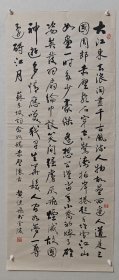 大江東去浪淘盡千古風流人物故壘西邊人道是三
國周郎赤壁亂石穿空驚濤拍岸捲起千堆雪江山
如畫一時多少豪傑遙想公瑾當年小喬初嫁了雄
姿英發羽扇綸巾談笑間檣櫓灰飛煙滅故國
神遊多情應笑我早生華髮人間如夢一尊
還酹江月